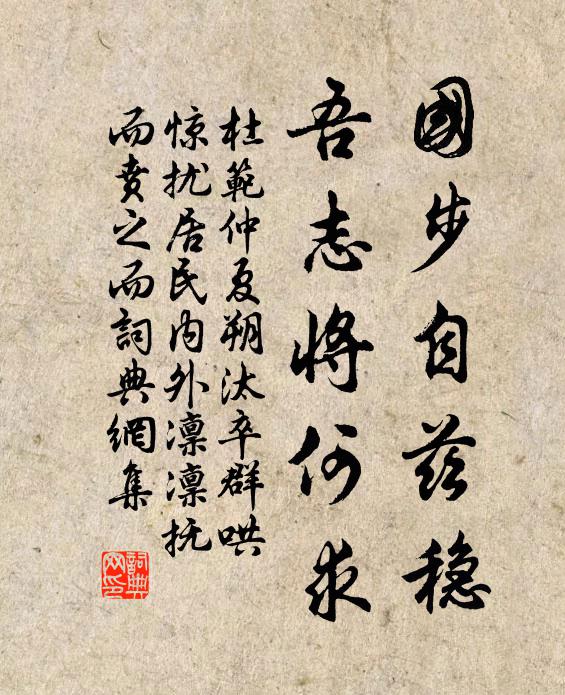 國步自茲穏
吾志將何求
杜範仲夏朔汰卒群哄
惊扰居民内外凛凛抚
而賁之而詞典網集
詞典網印